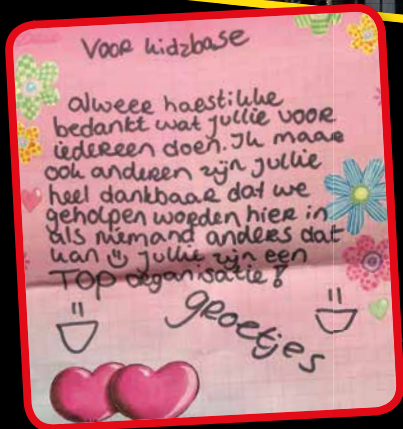 Voor kidzbase
alweer haestikke
bedankt wat jullie voor
iedereen doen. Ik maar
ook anderen zijn jullie
heel dankbaar dat we
geholpen worden hier in
als niemand anders dat
kan jullie zijn een
TOP organisatie!
groetjes